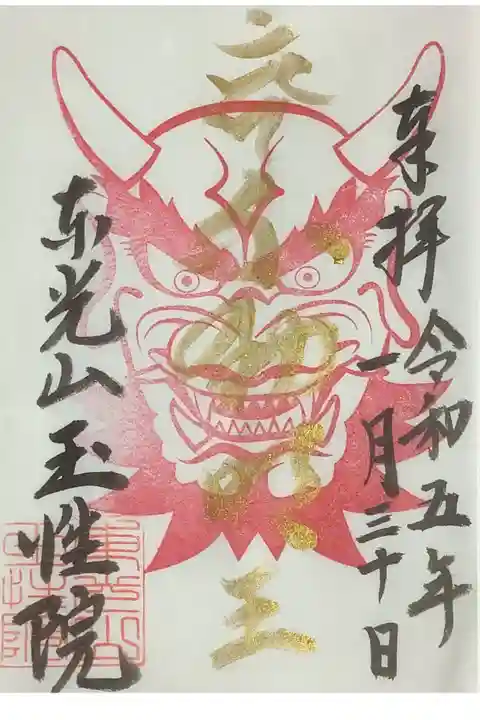 奉拝 令和五年
一月三十日
明王
東光山玉性院